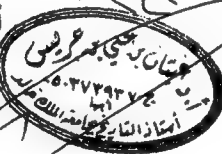 غيثان بن علي بن جريس
ج ٥٠٣٧٣٩٣٧
أبها
أستاذ التاريخ بجامعة الملك خالد